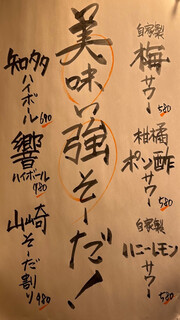 自家製
梅サワー
580
柑橘
ポン酢サワー
580
自家製
ハニーレモンサワー
580
美味い強そーだ!
知多
ハイボール
690
響
ハイボール
980
山崎
そーだ割り
980